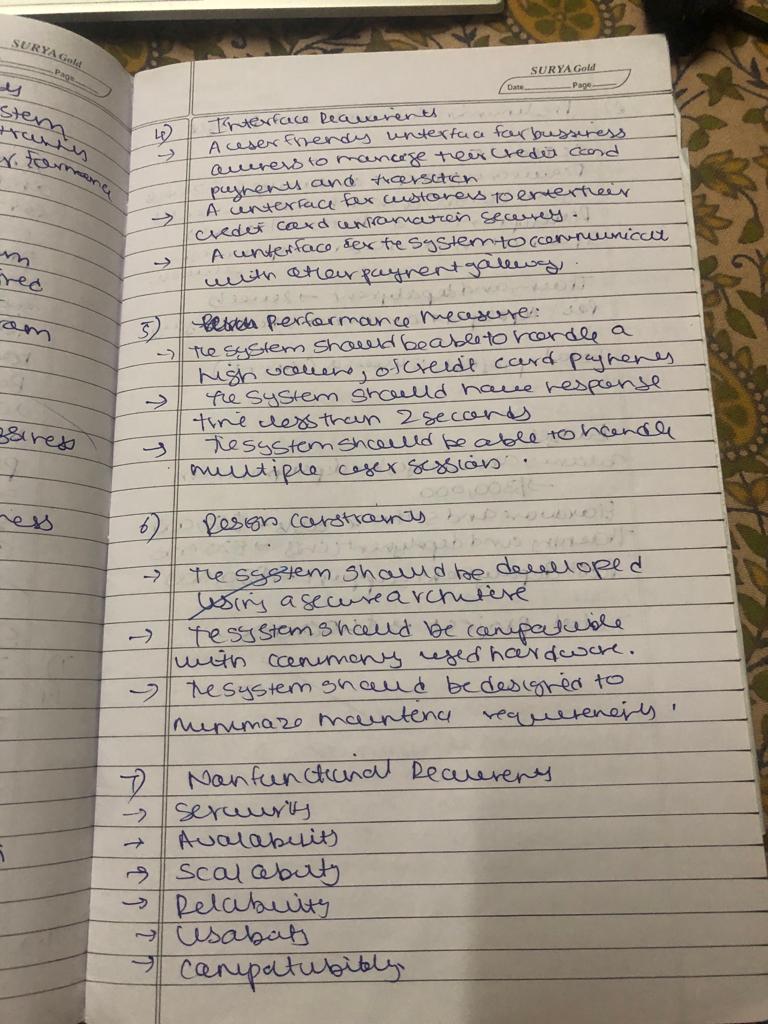 SURYA Gold
Page
stem
SURYA Gold
Date Page
4) Interface Requirements
→ A user friendly interface for bussiness
owners to manage their credit card
payments and
→ A interface for customers to enter their
credit card information securely.
→ A interface for the system to communicate
with other payment gateway.
5) Performance Measure:
→ The system should be able to handle a
high volume, of credit card payments
→ The system should have response
time less than 2 seconds
→ The system should be able to handle
multiple user session.
6) Design Constraints
→ The system should be developed
using a secure
→ The system should be compatible
with commonly used hardware.
→ The system should be designed to
requirements.
7) Nonfunctional Requirements
→ Security
→ Availability
→ Scalability
→ Reliability
→ Usability
→ Compatibility.